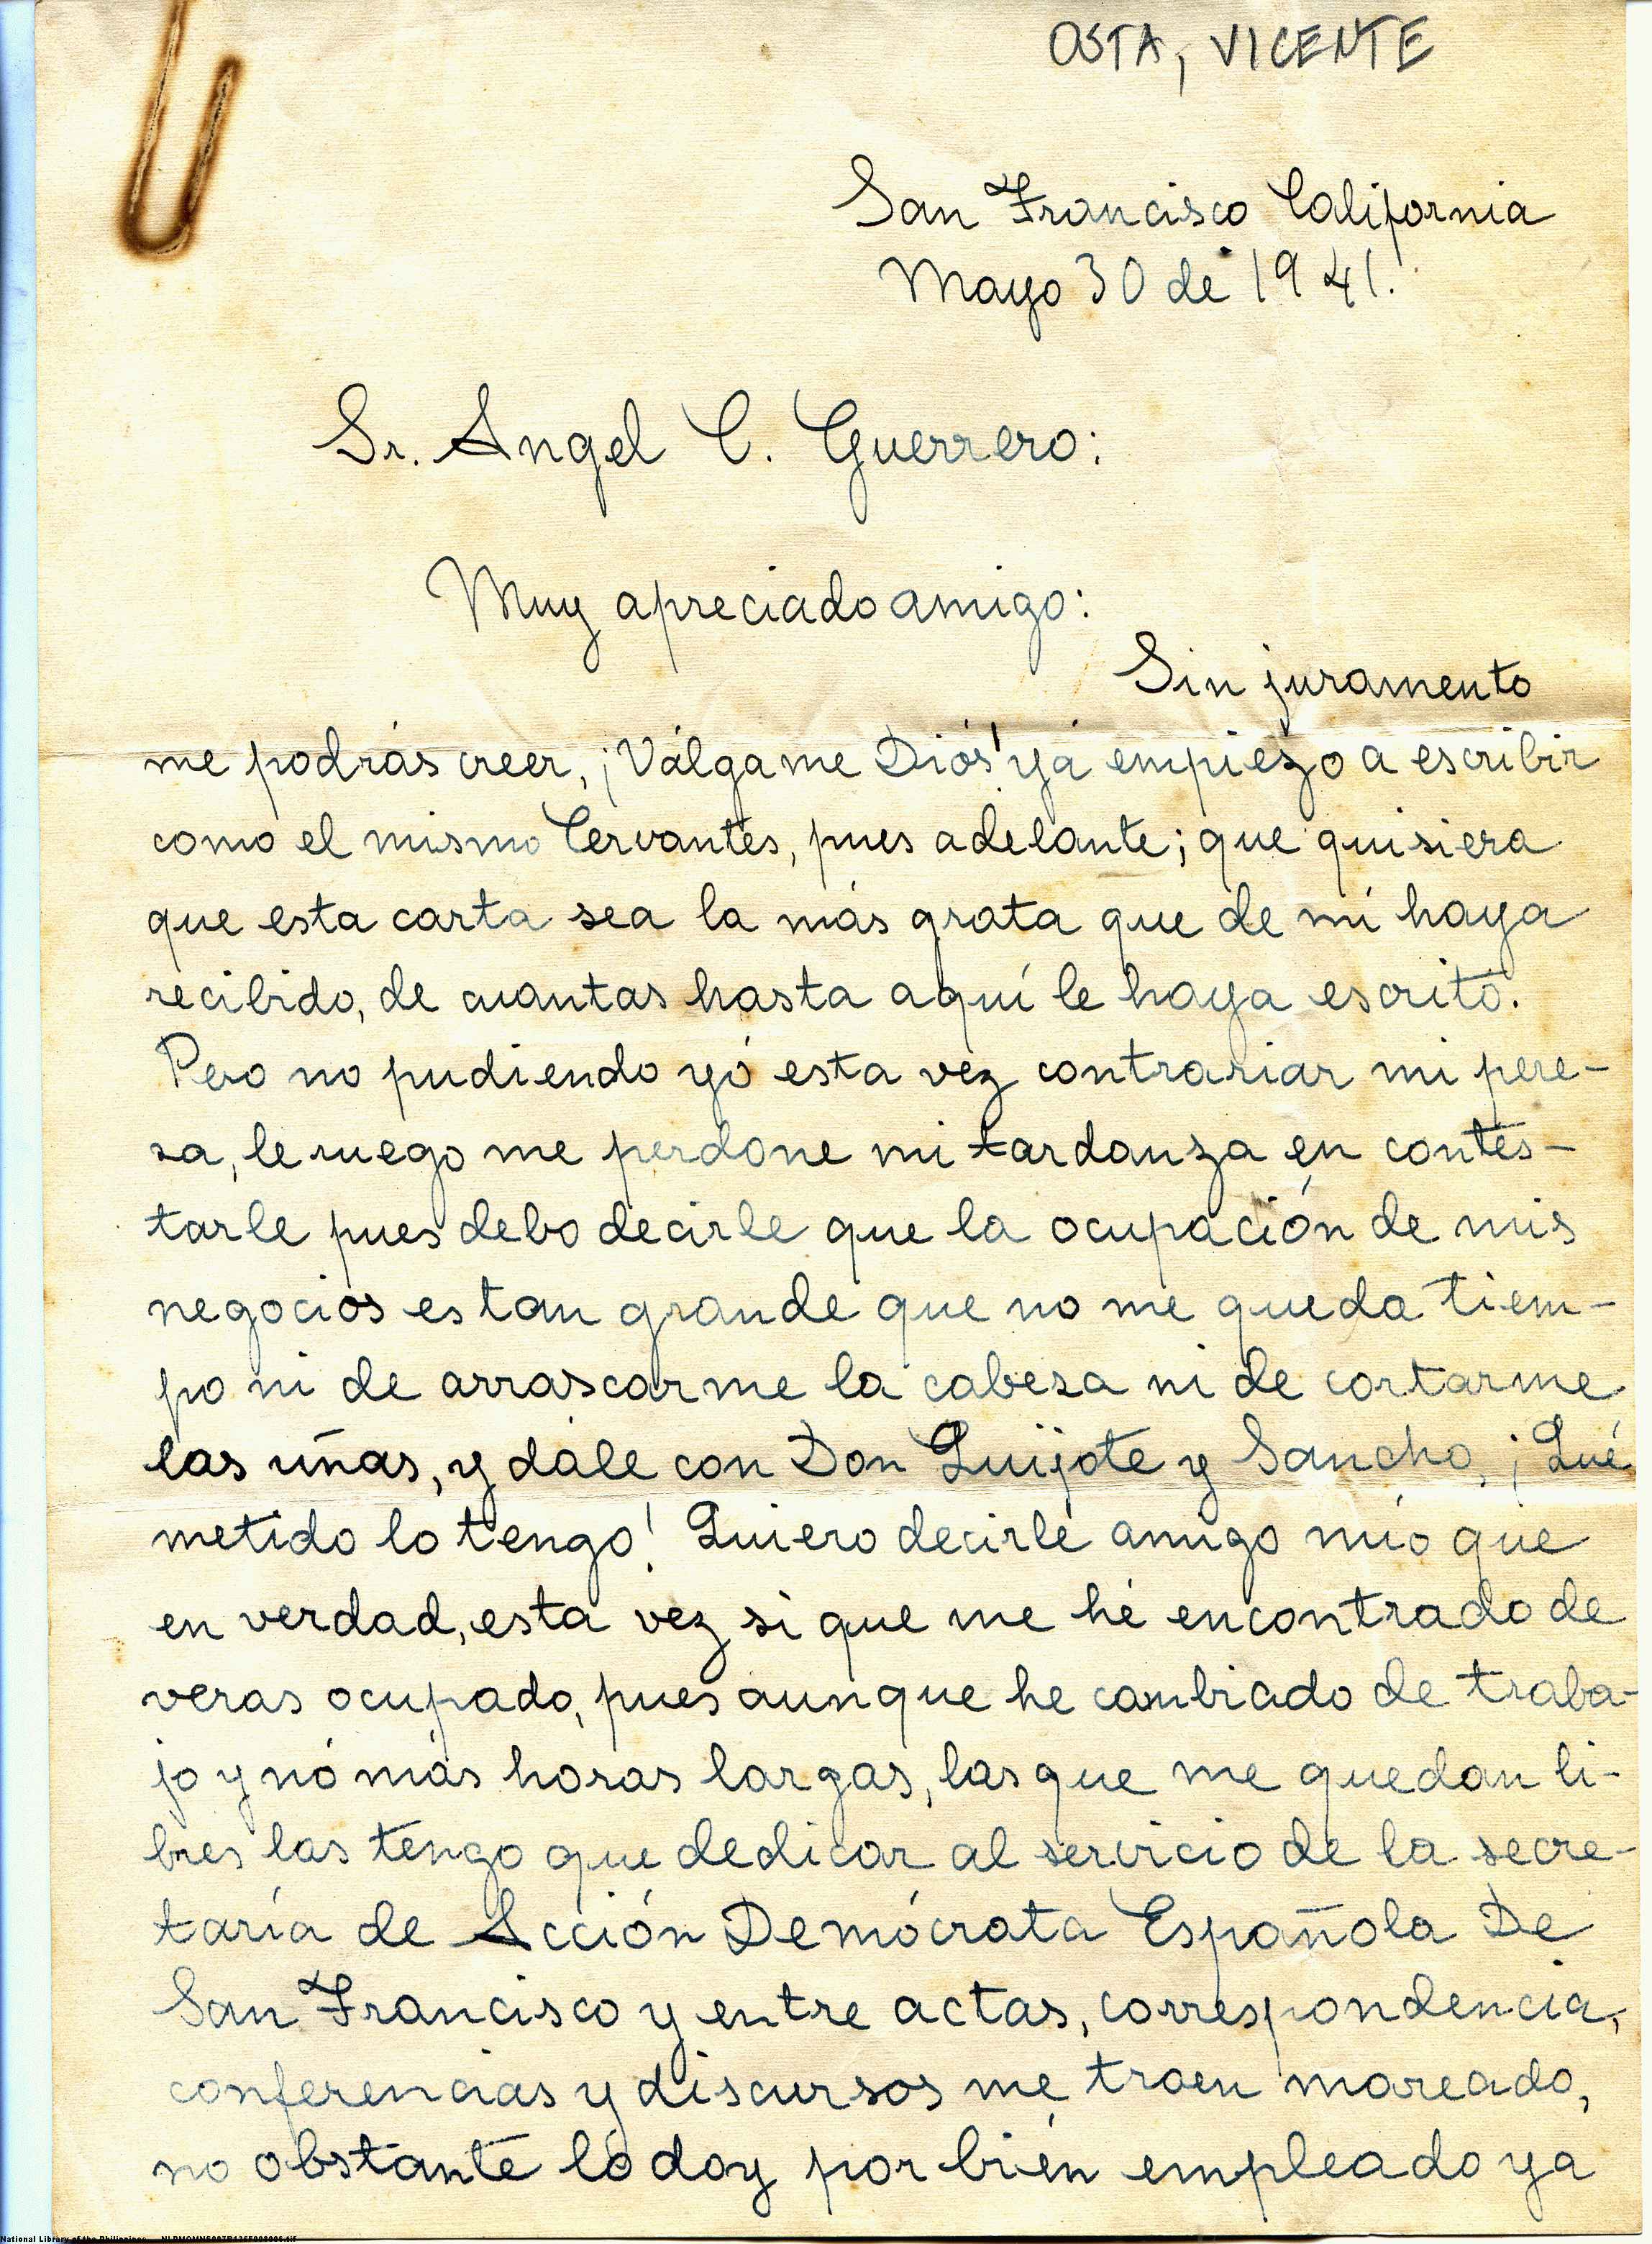 OSTA, VICENTE
San Francisco California
Mayo 30 de 1941.
Sr. Angel C. Guerrero:
Muy apreciado amigo:
Sin juramento
me podrás creer, ¡Válgame Diós! yá empiezo a escribir
como el mismo Cervantes, pues adelante; que quisiera
que esta carta sea la más grata que de mí haya
recibido, de cuantas hasta aquí le haya escrito.
Pero no pudiendo yó esta vez contrariar mi pere-
sa, le ruego me perdone mi tardanza en contes-
tarle pues debo decirle que la ocupación de mis
negocios es tan grande que no me queda tiem-
po ni de arrascarme la cabesa ni de cortarme
las uñas, y dále con Don Quijote y Sancho, ¡Qué
metido lo tengo! Quiero decirle amigo mío que
en verdad, esta vez si que me hé encontrado de
veras ocupado, pues aunque he cambiado de traba-
jo y nó más horas largas, las que me quedan li-
bres las tengo que dedicar al servicio de la secre-
taría de Acción Demócrata Española De
San Francisco y entre actas, correspondencia,
conferencias y discursos me traen mareado,
no obstante ló doy por bién empleado ya
National Library of the Philippines